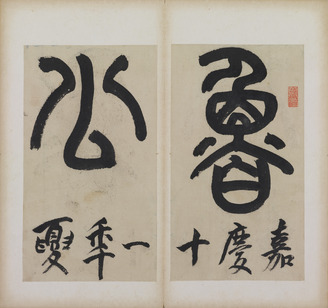 魯
嘉慶十
公
一秊夏